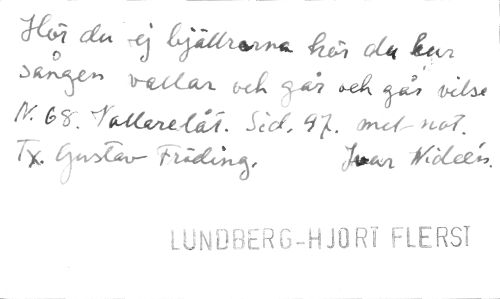 Hör du ej bjällrorna hör du hur
sången vallar och går och går vilse
N. 68. Vallarelåt. Sid. 97. met not.
Tx. Gustav Fröding. Ivar Widéen.
LUNDBERG-HJORT FLERST